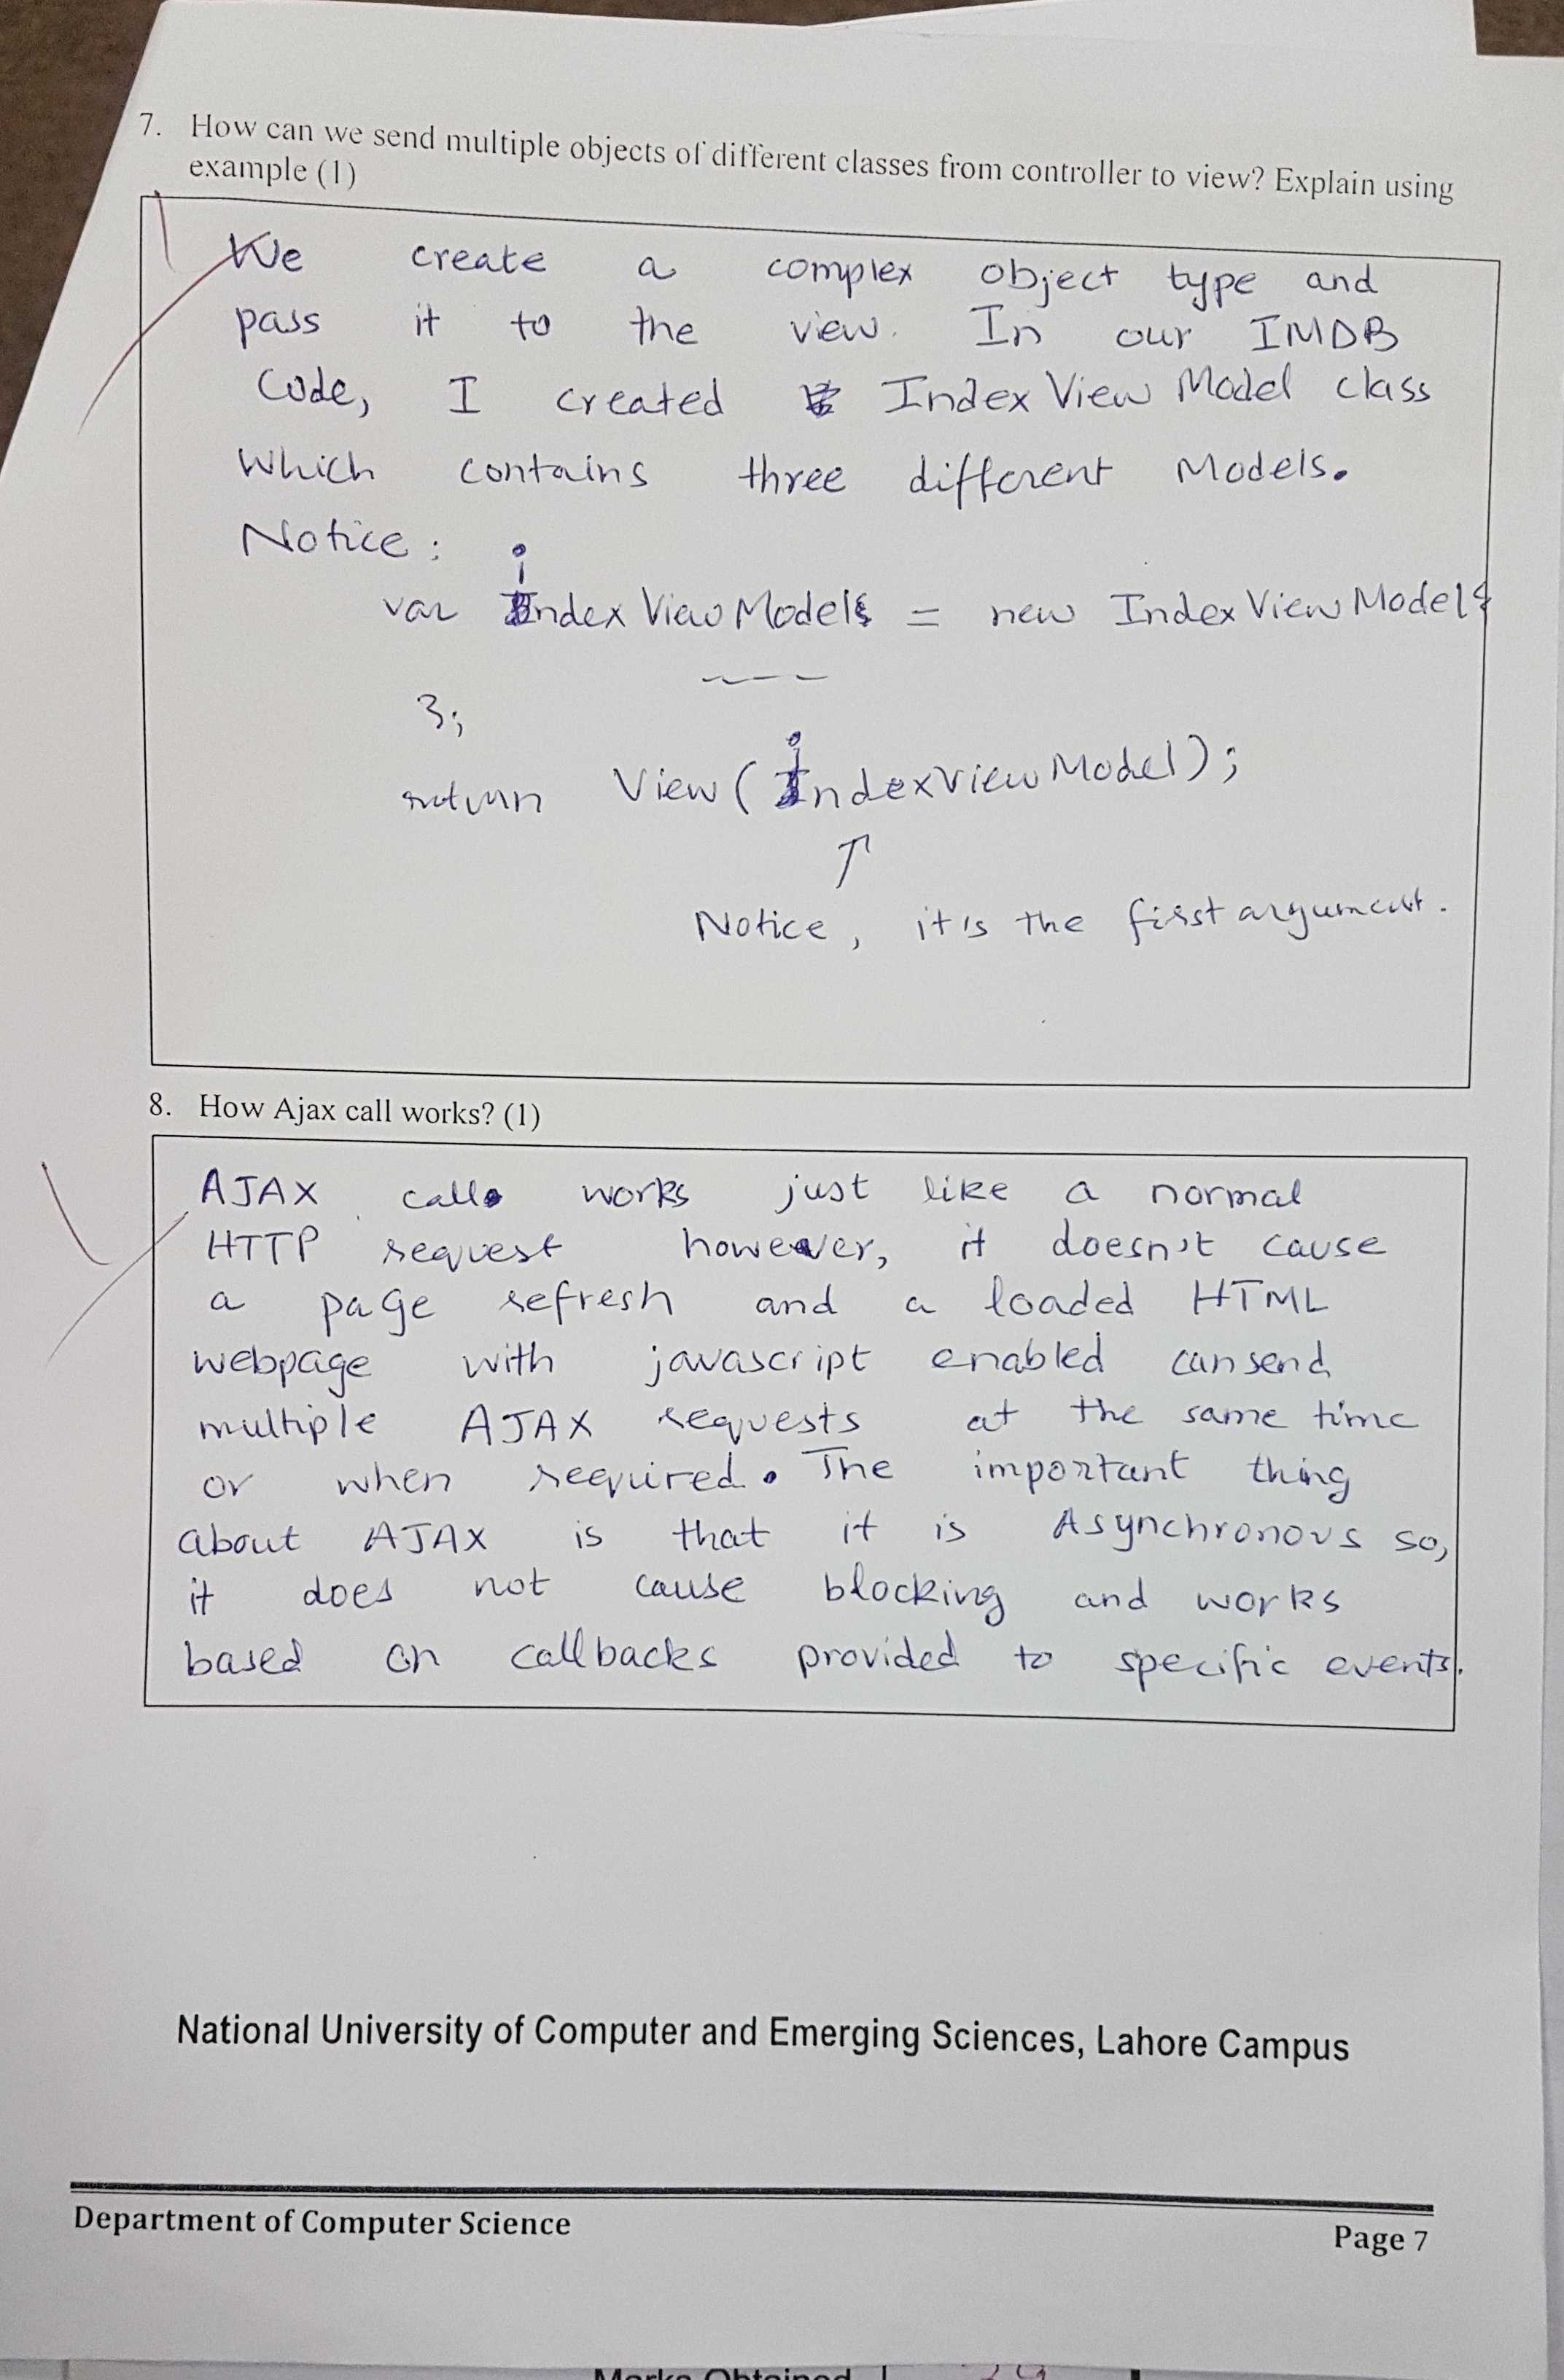 7. How can we send multiple objects of different classes from controller to view? Explain using
example (1)
We create a complex object type and
pass it to the view. In our IMDB
Code, I created IndexViewModel class
which contains three different Models.
Notice:
var indexViewModel = new IndexViewModel{
----
};
return View(indexViewModel);
↑
Notice, it's the first argument.
8. How Ajax call works? (1)
AJAX call works just like a normal
HTTP request however, it doesn't cause
a page refresh and a loaded HTML
webpage with javascript enabled can send
multiple AJAX requests at the same time
or when required. The important thing
about AJAX is that it is Asynchronous so,
it does not cause blocking and works
based on callbacks provided to specific events.
National University of Computer and Emerging Sciences, Lahore Campus
Department of Computer Science
Page 7